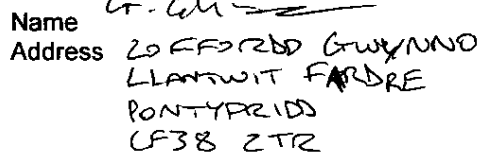 Name
Address 20 FFORDD GWYNNO
LLANTWIT FARDRE
PONTYPRIDD
CF38 2TR